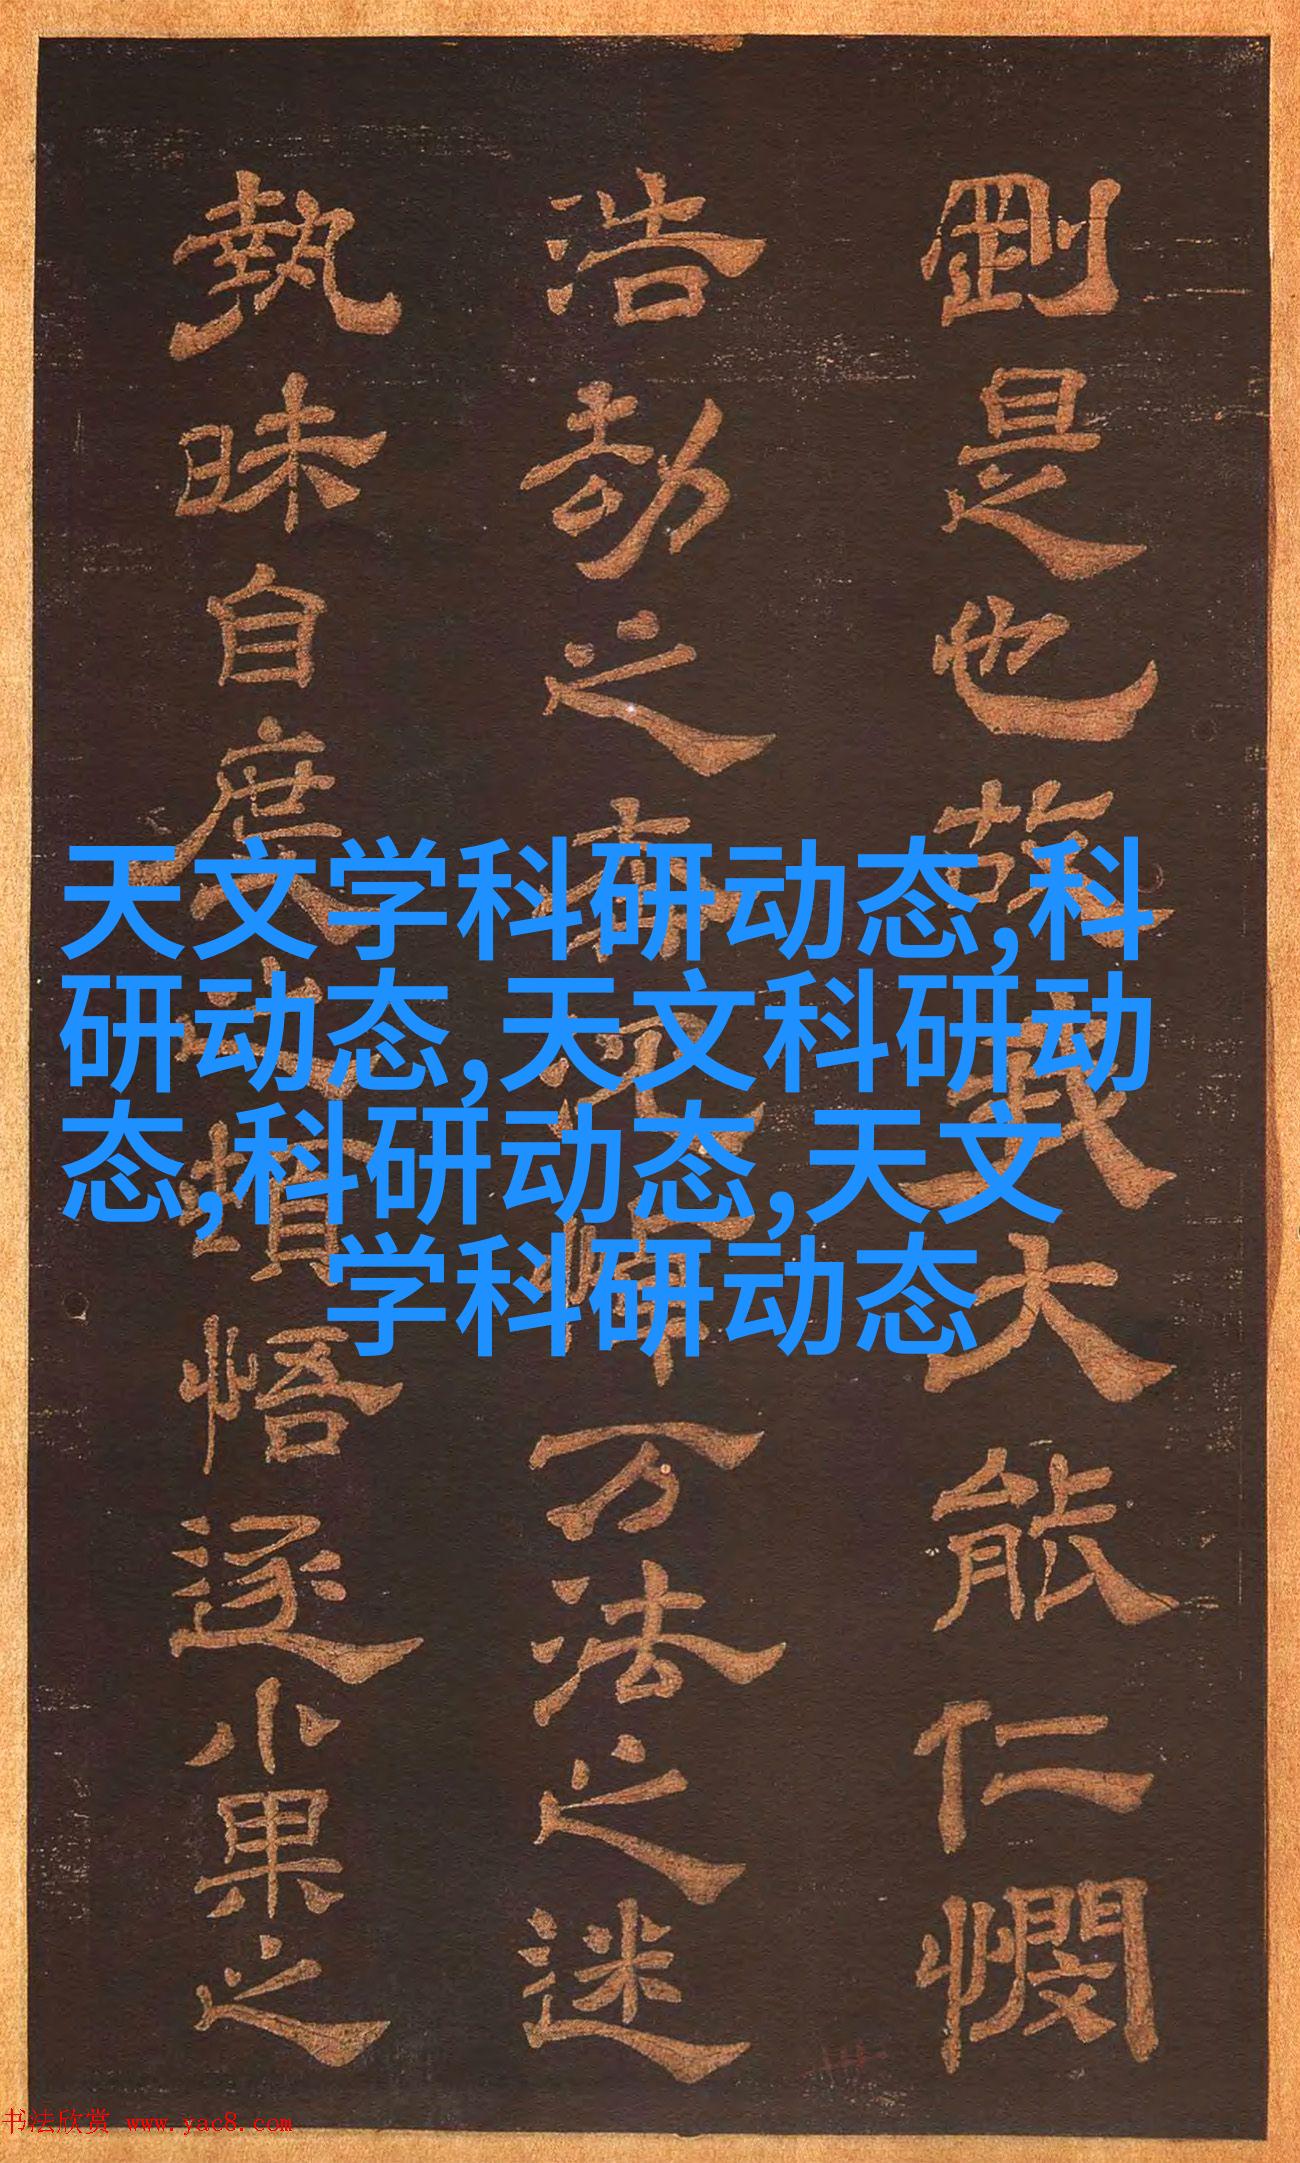 剛是也茲義大能仁憫
浩劫之
万法之迷
執昧自度
悟遂小果之
天文学科研动态,科
研动态,天文科研动
态,科研动态,天文
学科研动态
书法欣赏 www.yac8.com